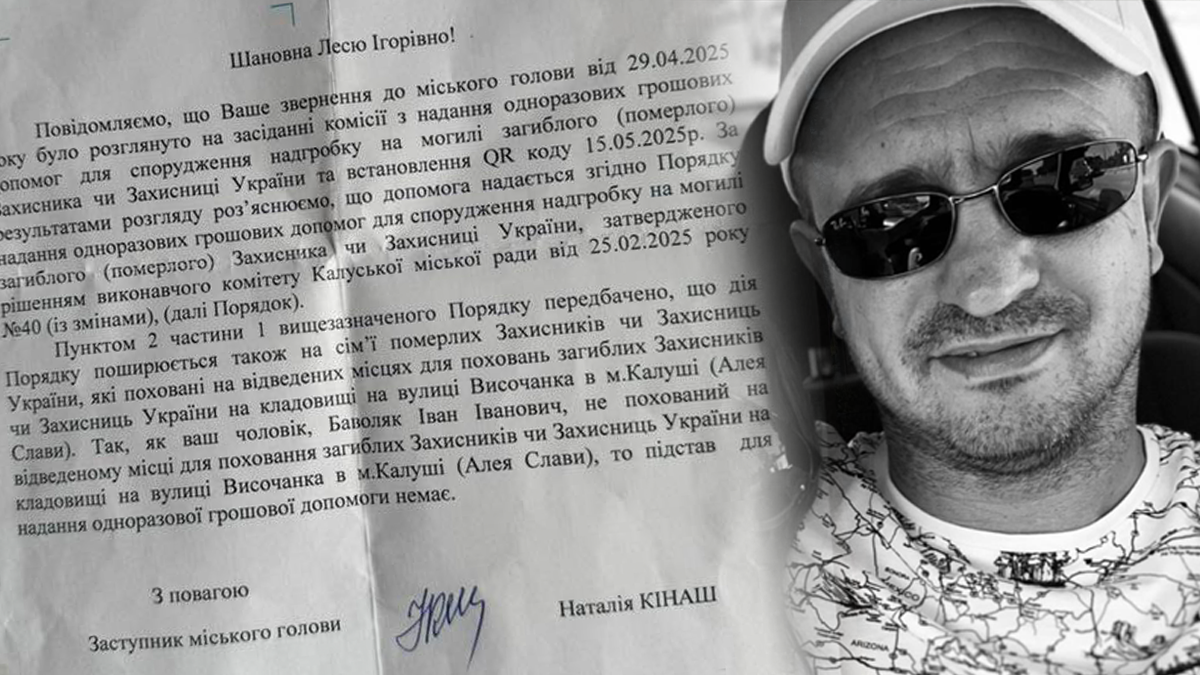 Шановна Лесю Ігорівно!
Повідомляємо, що Ваше звернення до міського голови від 29.04.2025
оку було розглянуто на засіданні комісії з надання одноразових грошових
опомог для спорудження надгробку на могилі загиблого (померлого)
Захисника чи Захисниці України та встановлення QR коду 15.05.2025р. За
результатами розгляду роз’яснюємо, що допомога надається згідно Порядку
надання одноразових грошових допомог для спорудження надгробку на могилі
загиблого (померлого) Захисника чи Захисниці України, затвердженого
рішенням виконавчого комітету Калуської міської ради від 25.02.2025 року
№40 (із змінами), (далі Порядок).
Пунктом 2 частини 1 вищезазначеного Порядку передбачено, що дія
Порядку поширюється також на сім’ї померлих Захисників чи Захисниць
України, які поховані на відведених місцях для поховань загиблих Захисників
чи Захисниць України на кладовищі на вулиці Височанка в м.Калуші (Алея
Слави). Так, як ваш чоловік, Баволяк Іван Іванович, не похований на
відведеному місці для поховання загиблих Захисників чи Захисниць України на
кладовищі на вулиці Височанка в м.Калуші (Алея Слави), то підстав для
надання одноразової грошової допомоги немає.
З повагою
Заступник міського голови
Наталія КІНАШ
SONORA
MEXICO
ARIZONA